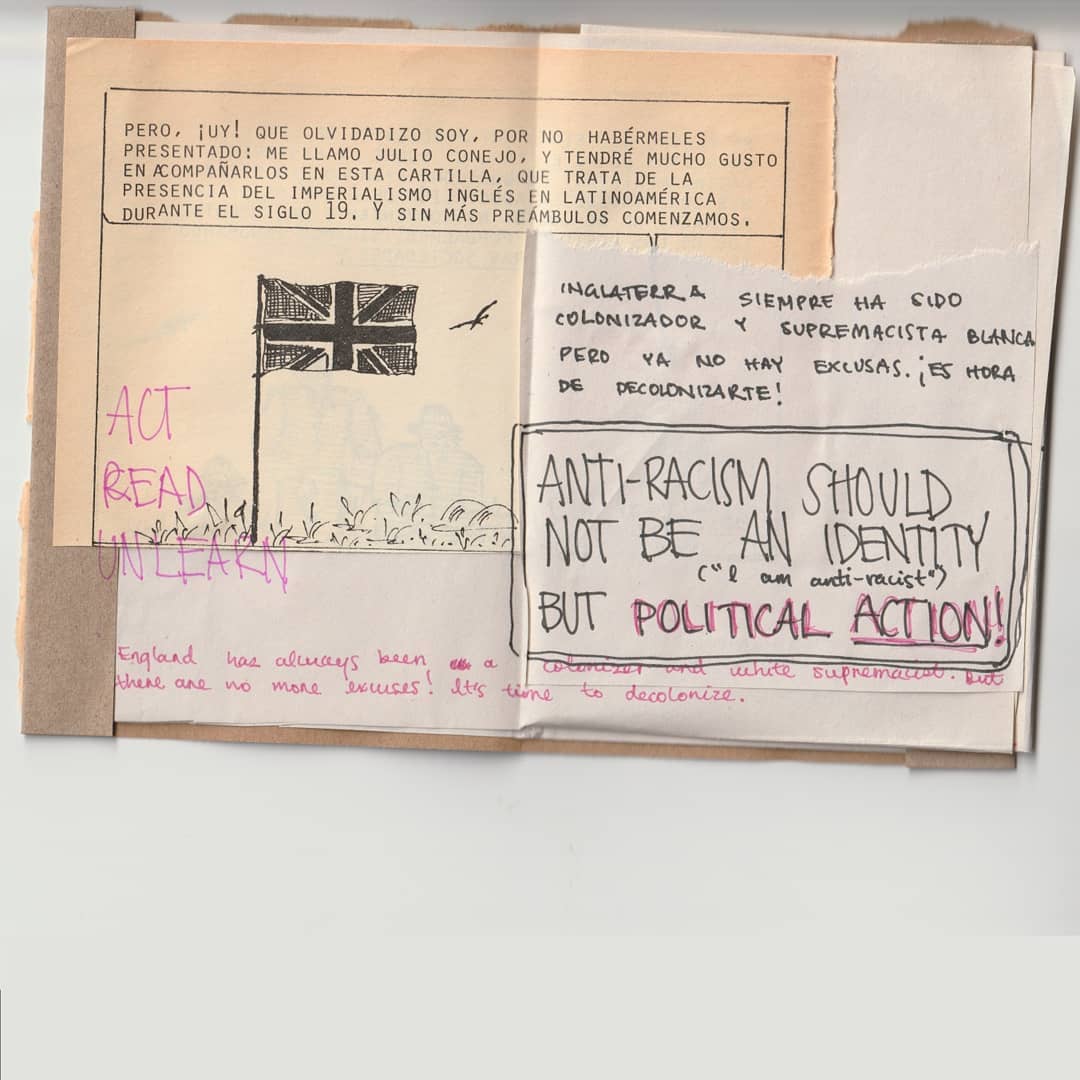 PERO, ¡UY! QUE OLVIDADIZO SOY, POR NO HABÉRMELES
PRESENTADO: ME LLAMO JULIO CONEJO, Y TENDRÉ MUCHO GUSTO
EN ACOMPAÑARLOS EN ESTA CARTILLA, QUE TRATA DE LA
PRESENCIA DEL IMPERIALISMO INGLÉS EN LATINOAMÉRICA
DURANTE EL SIGLO 19. Y SIN MÁS PREÁMBULOS COMENZAMOS.
INGLATERRA SIEMPRE HA SIDO
COLONIZADOR Y SUPREMACISTA BLANCA
PERO YA NO HAY EXCUSAS. ¡ES HORA
DE DECOLONIZARTE!
ACT
READ
UNLEARN
ANTI-RACISM SHOULD
NOT BE AN IDENTITY
("I am anti-racist")
BUT POLITICAL ACTION!
England has always been a colonizer and white supremacist. But
there are no more excuses! It's time to decolonize.